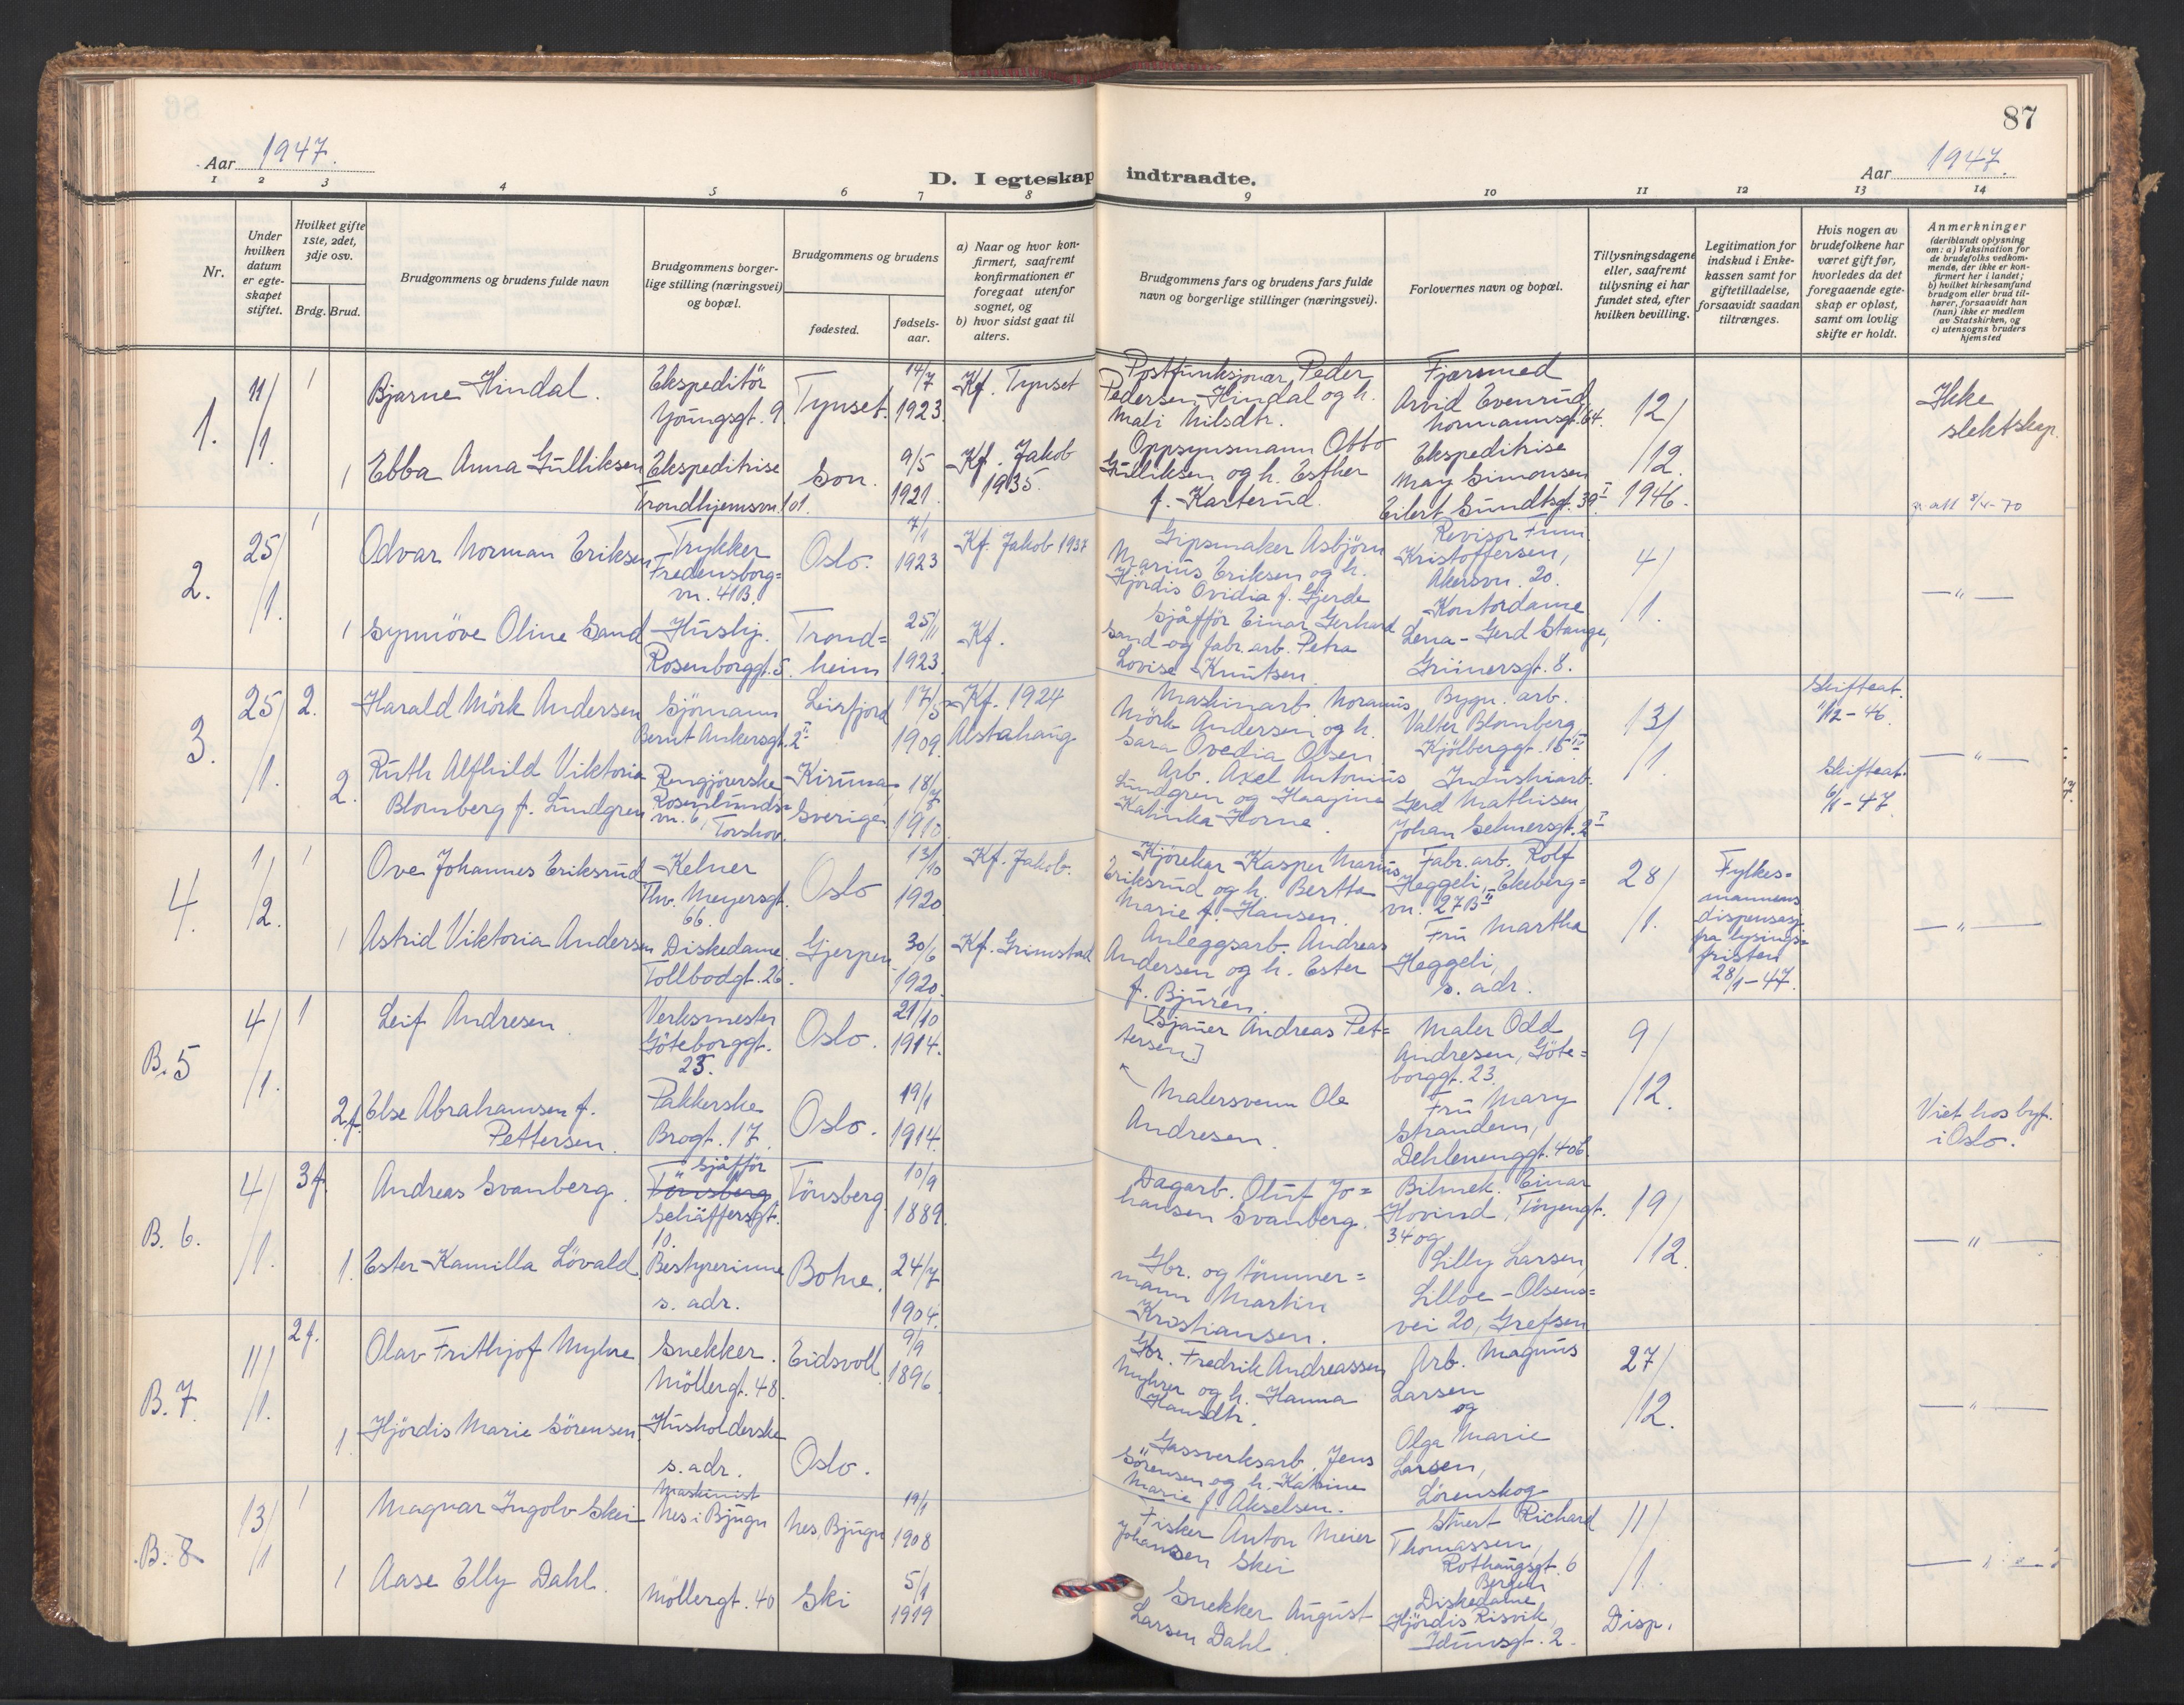 87
Aar 1947.
Aar 1947.
D. I egteskap indtraadte.
1 2 3 4 5 6 7 8 9 10 11 12 13 14
Nr.
Under hvilken datum er egteskapet stiftet.
Hvilket gifte 1ste, 2det, 3dje osv.
Brdg. Brud.
Brudgommens og brudens fulde navn
Brudgommens borgerlige stilling (næringsvei) og bopæl.
Brudgommens og brudens
fødested.
fødselsaar.
a) Naar og hvor konfirmert, saafremt konfirmationen er foregaat utenfor sognet, og
b) hvor sidst gaat til alters.
Brudgommens fars og brudens fars fulde navn og borgerlige stillinger (næringsvei).
Forlovernes navn og bopæl.
Tillysningsdagene eller, saafremt tillysning ei har fundet sted, efter hvilken bevilling.
Legitimation for indskud i Enkekassen samt for giftetilladelse, forsaavidt saadan tiltrænges.
Hvis nogen av brudefolkene har været gift før, hvorledes da det foregaaende egteskap er opløst, samt om lovlig skifte er holdt.
Anmerkninger (deriblandt oplysning om: a) Vaksination for de brudefolks vedkommende, der ikke er konfirmert her i landet; b) hvilket kirkesamfund brudgom eller brud tilhører, forsaavidt han (hun) ikke er medlem av Statskirken, og c) utensogns bruders hjemsted
1.
11/1.
1
Bjarne Hindal.
Ekspeditör
Youngsgt. 9.
Tynset.
14/7
1923.
Kf. Tynset
Postfunksjonær Peder
Pedersen Hindal og h.
Mali Nilsdtr.
Fjærsmed
Arvid Evenrud,
Normannsgt. 64.
12/12.
1946.
Ikke
slektskap.
1
Ebba Anna Gulliksen
Ekspeditrise
Trondhjemsvn. 101.
Son.
9/5
1921.
Kf. Jakob
1935.
Oppsynsmann Otto
Gulliksen og h. Esther
f. Karterud.
Ekspeditrise
May Simonsen
Eilert Sundtsgt. 39 I
2.
25/1.
1
Odvar Norman Eriksen
Trykker
Fredensborg=
vn. 41B.
Oslo.
7/1
1923
Kf. Jakob 1937
Gipsmaker Asbjörn
Marius Eriksen og h.
Hjördis Ovidia f. Gjerde
Revisor Finn
Kristoffersen,
Akersvn. 20.
4/1.
— " —
1
Synnöve Oline Sand
Hushj.
Rosenborggt. 5.
Trond=
heim
25/11
1923.
Kf.
Sjåfför Einar Gerhard
Sand og fabr.arb. Petra
Lovise Knutsen.
Kontordame
Lena-Gerd Stange,
Grünersgt. 8.
3.
25/1.
2.
Harald Mörk Andersen
Sjömann
Bernt Ankersgt. 2 II
Leirfjord
17/5
1909.
Kf. 1924
Alstahaug
Mörk Andersen og h.
Sara Ovedia Olsen
Bygn. arb.
Valter Blomberg
Kjölberggt. 15 IV
13/1.
Skifteat.
— " —
2.
Ruth Alfhild Viktoria
Blomberg f. Lundgren
Rengjörerske
Rosenlunds=
vn. 6, Torshov.
Kiruna,
Sverige.
18/7
1910.
Arb. Axel Antonius
Lundgren og Haagine
Kahinka Horne.
Industriarb.
Gerd Mathisen,
Johan Selmersgt. 2 I
Skifteat.
6/1-47.
4.
1/2.
1
Ove Johannes Eriksrud
Kelner
Thv. Meyersgt.
66.
Oslo
13/10
1920.
Kf. Jakob.
Kjörekar Kasper Marius
Eriksrud og h. Bertta
Marie f. Hansen.
Fabr.arb. Rolf
Heggeli, Ekeberg=
vn. 27B II
28/1.
Fylkes=
mannens
dispensasj.
fra lysings=
fristen
28/1-47.
— " —
1
Astrid Viktoria Andersen
Diskedame.
Tollbodgt. 26.
Gjerpen
30/6
1920.
Kf. Grimstad
Anleggsarb. Andreas
Andersen og h. Ester
f. Bjurén.
Fru Martha
Heggeli,
s. adr.
B. 5
4/1.
1
Leif Andresen.
Verksmester
Göteborggt.
23.
Oslo.
21/10
1914.
[Sjauer Andreas Pet=
tersen]
Maler Odd
Andresen, Göte=
borggt. 23.
9/12.
2 f.
Else Abrahamsen f.
Pettersen.
Pakkerske
Brogt. 17.
Oslo.
19/1
1914.
Malersvenn Ole
Andresen.
Fru Mary
Strandem,
Dehlenenggt. 40b.
Viet hos byf.
i Oslo.
B. 6.
4/1.
3 f.
Andreas Svanberg.
Sjåfför
Tönsberg
Schäffersgt.
10.
Tönsberg
10/9
1889.
Dagarb. Oluf Jo=
hansen Svanberg.
Bilmek. Einar
Hovind, Töyengt.
34 og
19/12.
— " —
1.
Ester Kamilla Lövald.
Bestyrerinne
s. adr.
Botne.
24/7
1904.
Gbr. og tömmer=
mann Martin
Kristiansen.
Lilly Larsen,
Lilloe-Olsens=
vei 20, Grefsen
B. 7.
11/1.
2 f.
Olav Frithjof Myhre
Snekker.
Möllergt. 48.
Eidsvoll
9/9
1896.
Gbr. Fredrik Andreassen
Myhrer og h. Hanna
Hansdtr.
Arb. Magnus
Larsen
og
27/12.
— " —
1.
Hjördis Marie Sörensen.
Husholderske
s. adr.
Oslo.
Gassverksarb. Jens
Sörensen og h. Katrine
Marie f. Akselsen.
Olga Marie
Larsen,
Lörenskog
B. 8
13/1
1
Magnar Ingolv Skei
Maskinist
Nes i Bjugn
Nes, Bjugn
19/1
1908
Fisker Anton Meier
Johansen Skei
Stuert Richard
Thomassen,
Rothaugsgt. 6
Bergen
11/1.
Disp.
— " —
1
Aase Elly Dahl.
Möllergt. 40
Ski
5/1
1919
Snekker August
Larsen Dahl.
Diskedame
Hjördis Risvik,
Idunsgt. 2.